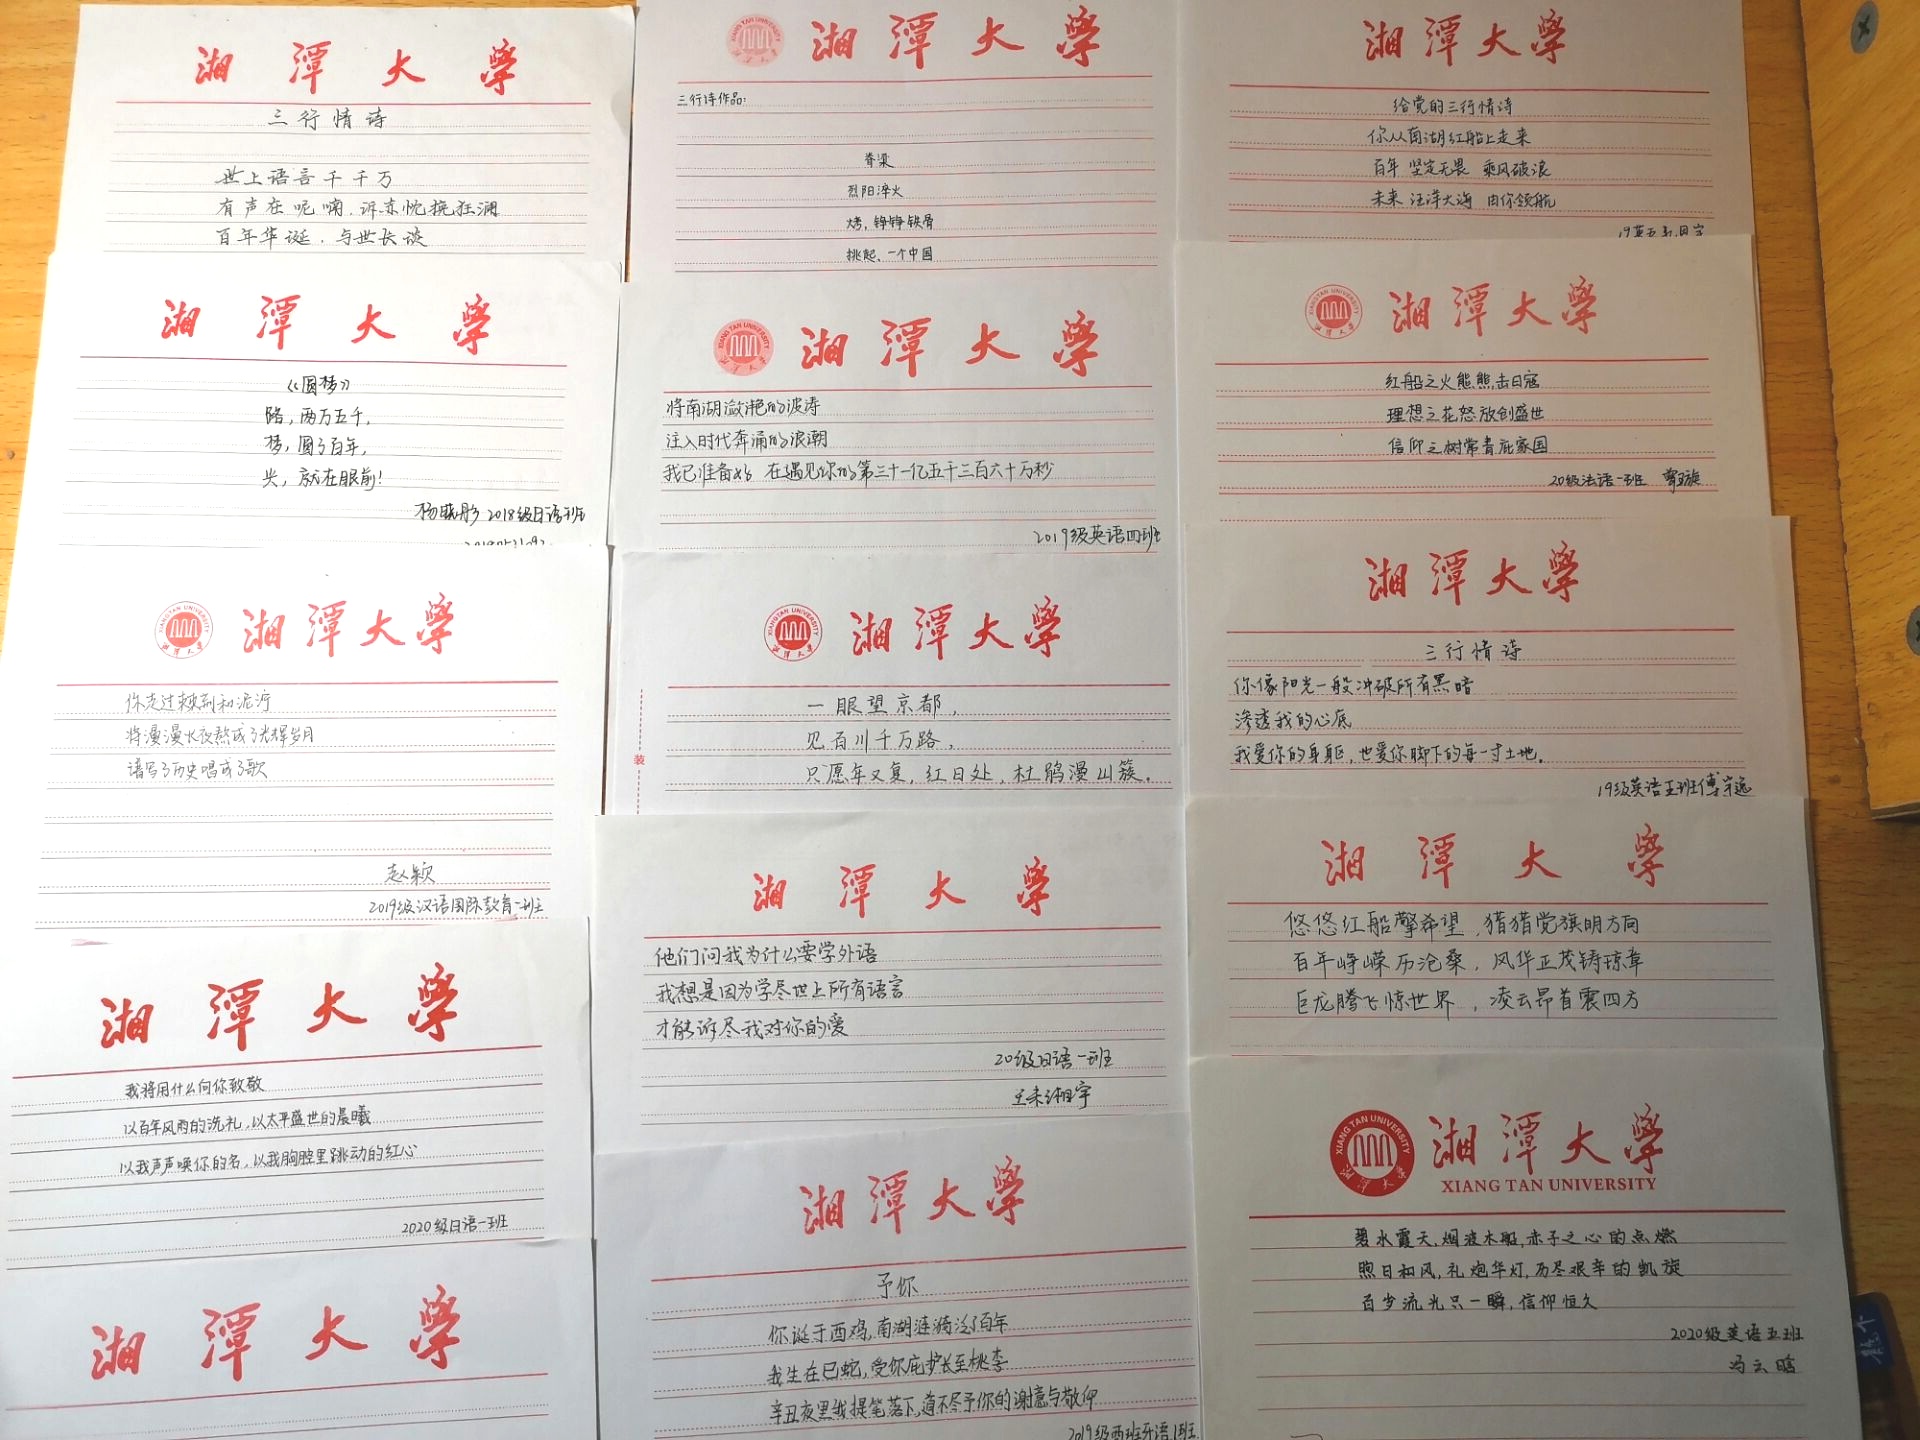 湘潭大学
三行情诗
世上语言千千万
有声在呢喃,诉亦忱挽狂澜
百年华诞,与世长谈
湘潭大学
《圆梦》
路,两万五千,
梦,圆了百年,
光,就在眼前!
杨晓彤 2018级日语班
湘潭大学
你走过荆棘和泥泞
将漫漫长夜熬成了光辉岁月
谱写了历史唱成了歌
赵颖
2019级汉语国际教育一班
湘潭大学
我将用什么向你致敬
以百年风雨的洗礼,以太平盛世的晨曦
以我声声唤你的名,以我胸腔里跳动的红心
2020级日语一班
湘潭大学
湘潭大学
三行诗作品:
脊梁
烈阳淬火
烤,铮铮铁骨
挑起、一个中国
XIANG TAN UNIVERSITY
湘潭大学
将南湖潋滟的波涛
注入时代奔涌的浪潮
我已准备好 在遇见你的第三十一亿五千三百六十万秒
2019级英语四班
XIANG TAN UNIVERSITY
湘潭大学
装
一眼望京都,
见百川千万路,
只愿年又复,红日处,杜鹃漫山簇。
湘潭大学
他们问我为什么要学外语
我想是因为学尽世上所有语言
才能诉尽我对你的爱
20级日语一班
湘潭大学
予你
你诞于酉鸡,南湖涟漪泛了百年
我生在巳蛇,受你庇护长至桃李
辛丑夜里我提笔落下,道不尽予你的谢意与敬仰
2019级西班牙语1班
湘潭大学
给党的三行情诗
你从南湖红船上走来
百年 坚定无畏 乘风破浪
未来 汪洋大海 由你领航
XIANG TAN UNIVERSITY
湘潭大学
红船之火熊熊击日寇
理想之花怒放创盛世
信仰之树常青庇家国
20级法语一班
湘潭大学
三行情诗
你像阳光一般冲破所有黑暗
渗透我的心底
我爱你的身躯,也爱你脚下的每一寸土地。
19级英语五班傅宇远
湘潭大学
悠悠红船擎希望,猎猎党旗明方向
百年峥嵘历沧桑,风华正茂铸琼章
巨龙腾飞惊世界,凌云昂首震四方
XIANG TAN UNIVERSITY
湘潭大学
XIANG TAN UNIVERSITY
碧水霞天,烟波木船,赤子之心的点燃
煦日和风,礼炮华灯,历尽艰辛的凯旋
百岁流光只一瞬,信仰恒久
2020级英语五班
冯云晗